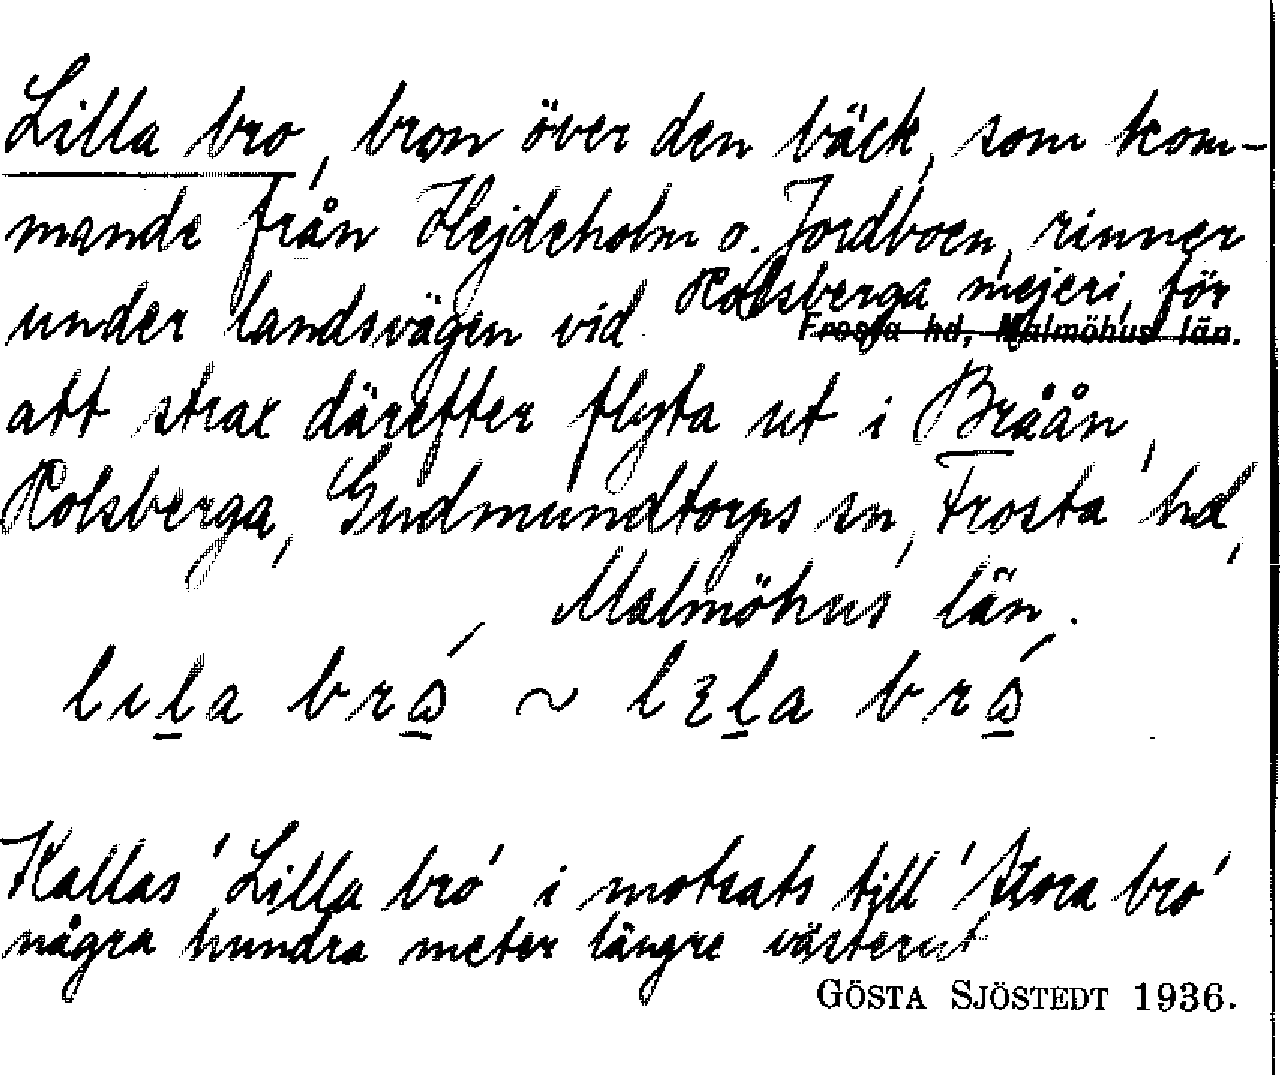 Lilla bro, bron över den bäck, som kom-
mande från Hejdeholm o. Jordboen, rinner
under landsvägen vid Rolsberga mejeri, för
Frosta hd, Malmöhus län.
att strax därefter flyta ut i Bråån,
Rolsberga, Gudmundtorps sn, Frosta hd,
Malmöhus län.
lıla brɷ́ ~ lꜫla brɷ́
Kallas 'Lilla bro' i motsats till 'Stora bro'
några hundra meter längre västerut
GÖSTA SJÖSTEDT 1936.